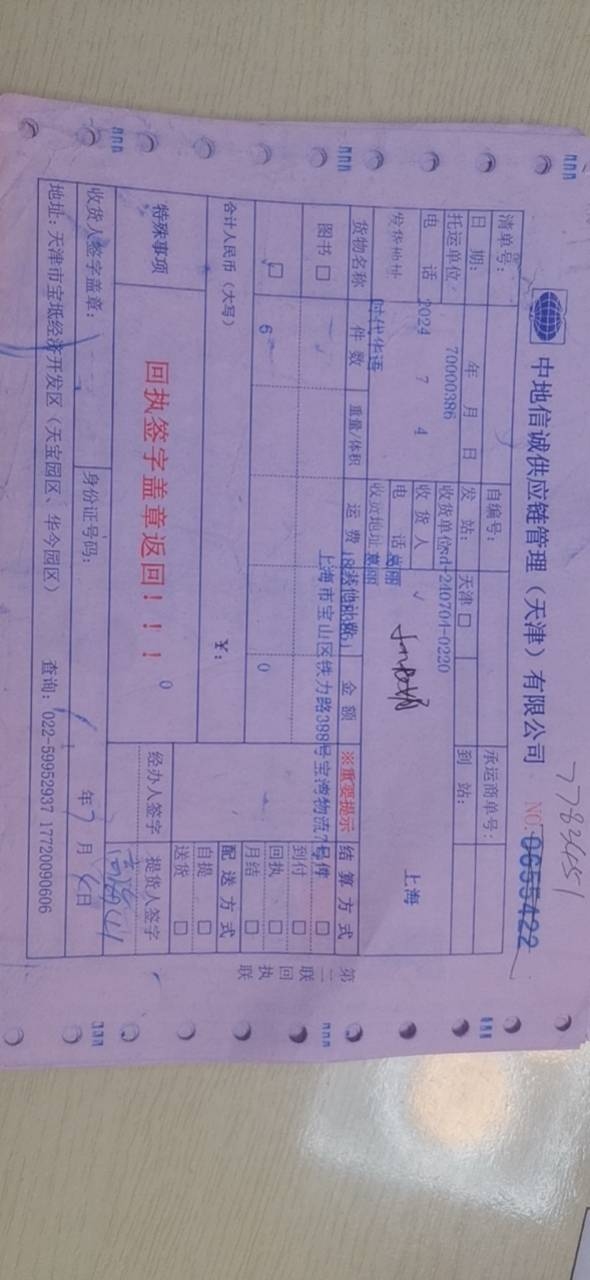 中地信诚供应链管理（天津）有限公司
NO.0655422
7784451
清单号：
自编号：
承运商单号：
日 期： 年 月 日
发 站： 天津 □
到 站：
托运单位：
70000386
收货单位
sd-240704-0220
电 话
2024 7 4
收 货 人
上海
发货地址
电 话
时代华语
收货地址
葛丽
货物名称
件 数
重量/体积
运 费
其他补费
金 额
※重要提示
结 算 方 式
上海市宝山区铁力路388号宝湾物流7号库
图书 □
□
到付 □
□
6
0
回执 □
月结 □
合计人民币（大写）
￥：
配 送 方 式
自提 □
送货 □
特殊事项
回执签字盖章返回！！！
0
经办人签字
提货人签字
收货人签字盖章：
身份证号码：
年 7 月 日
地址：天津市宝坻经济开发区（天宝园区、华今园区）
查询：022-59952937 17720090606
第二联 回执联